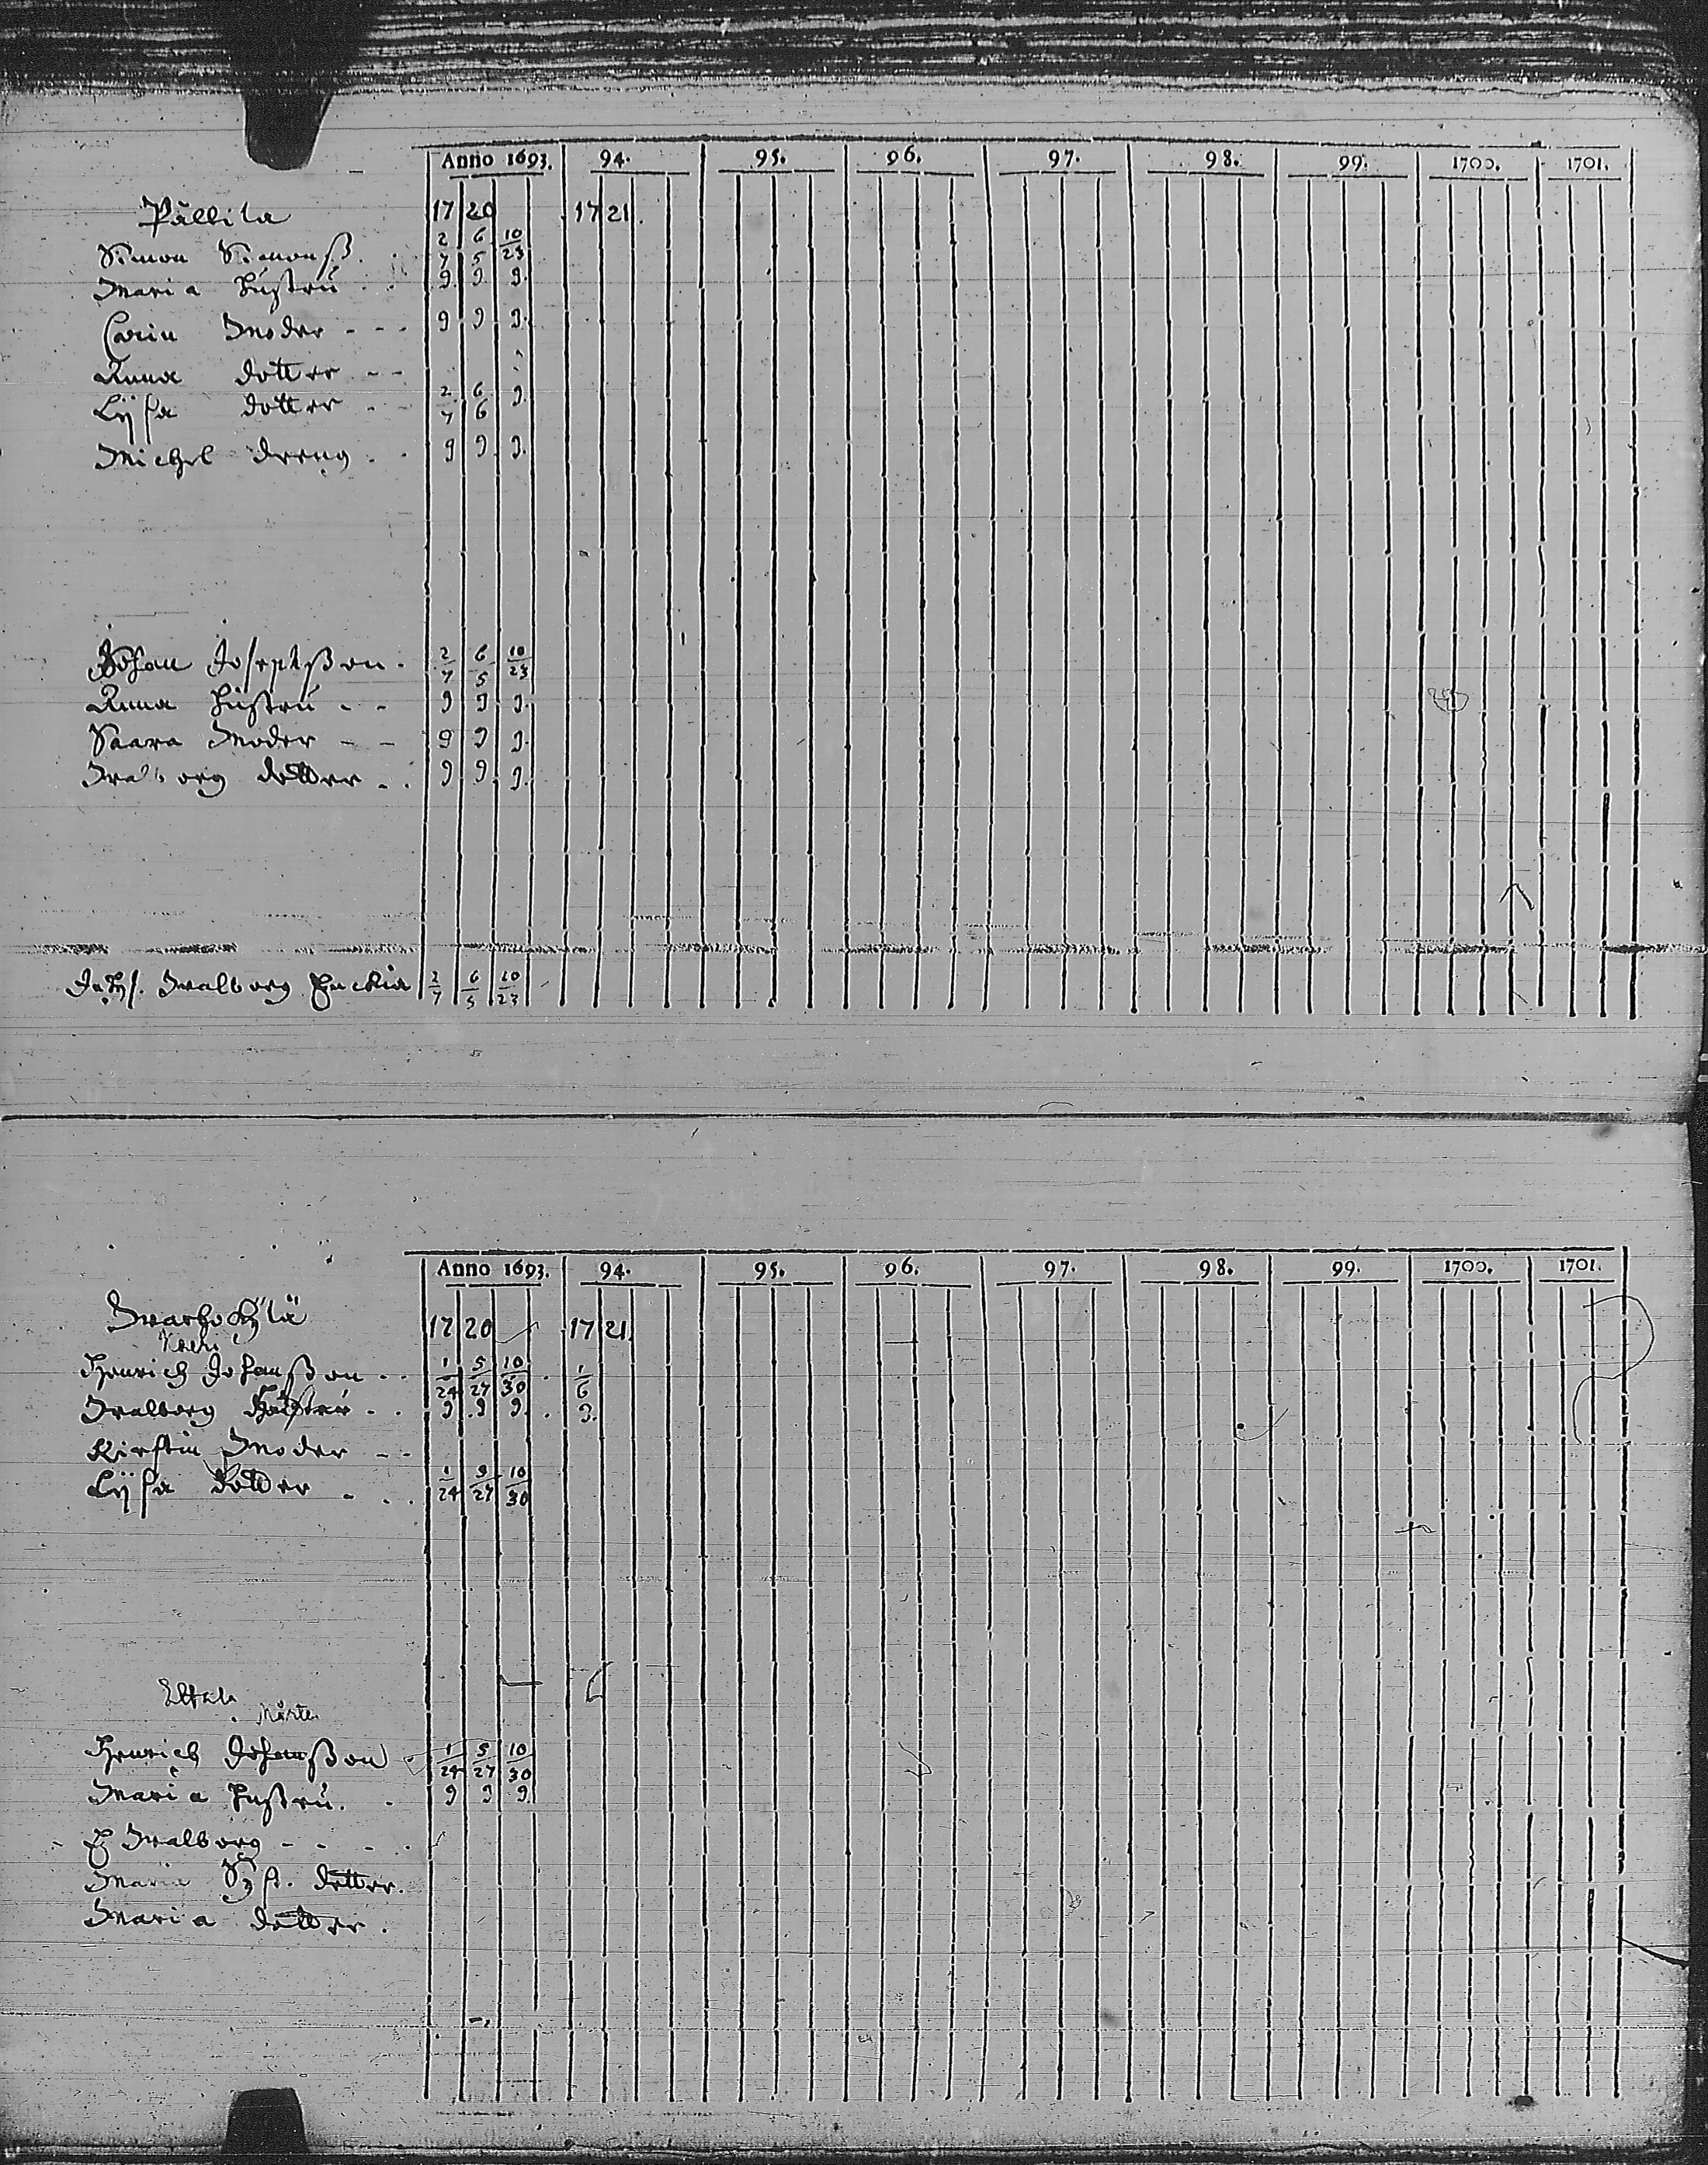 Anno 1693. 94. 95. 96. 97. 98. 99. 1700. 1701.
Pällilä 17 20 17 21.
Simon Simonß. 2/7 6/5 10/23
Maria Hustru 9 9 9.
Carin Moder - - - 9 9 9.
Anna dotter - -
Lijsa dotter - - 2/7 6/6 9
Michel dreng. 9 9 9.
Johan Josephßon. 2/7 6/5 10/23
Anna Hustru - - 9 9 9.
Saara Moder - - 9 9 9.
Walborg dotter - . 9 9 9.
Walborg Enckia 2/7 6/5 10/23
Anno 1693. 94. 95. 96. 97. 98. 99. 1700. 1701.
17 20 17 21.
Henrich Johanßon . . 1/24 5/27 10/30 1/6
Walborg Hustru - . 9 9 9. 9.
Kirstin Moder - -
Lijsa dotter - . . 1/24 5/27 10/30
Henrich Johanßon 1/24 5/27 10/30
Maria Hustru. - 9 9 9
Walborg - - - .
Maria dotter.
Maria dotter.